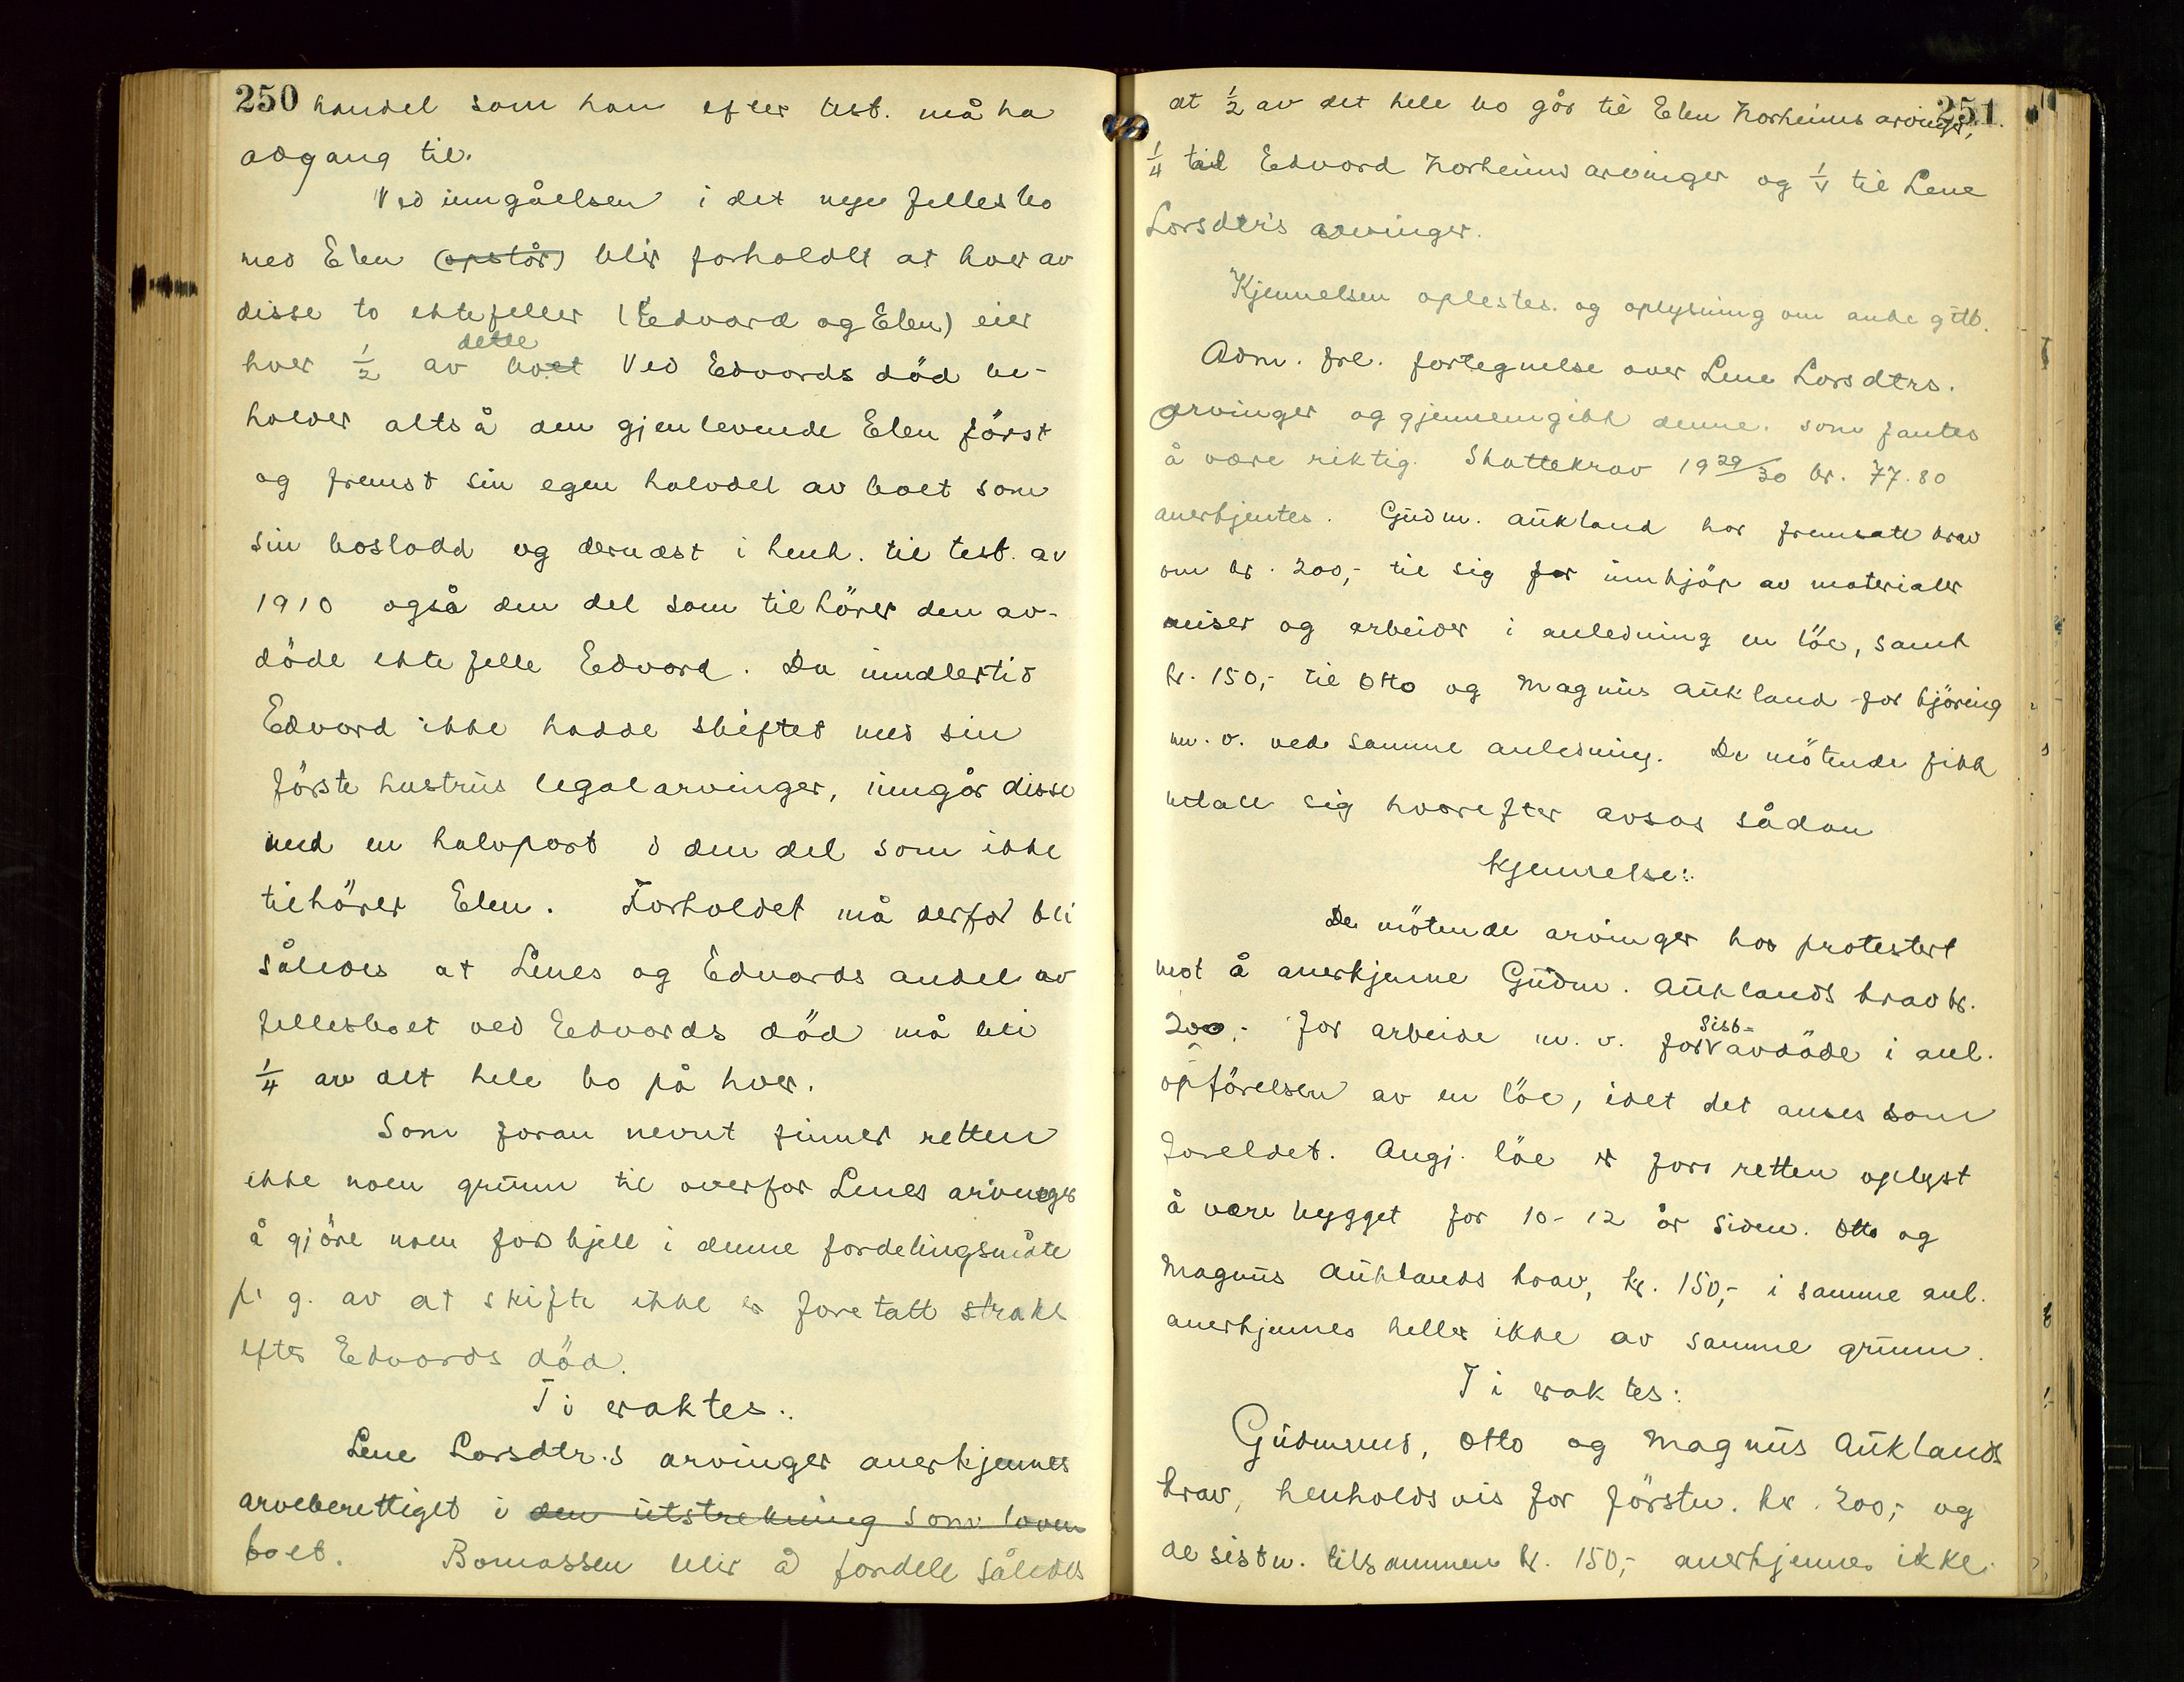 250 handel som han efter test. må ha
adgang til.
Ved inngåelsen i det nye fellesbo
med Elen (opstår) blir forholdt at hver av
disse to ektefeller (Edvard og Elen) eier
dette
hver 1/2 av boet Ved Edvards död be-
holder altså den gjenlevende Elen först
og fremst sin egen halvdel av boet som
sin boslodd og dernæst i henh. til test. av
1910 også den del som tilhörer den av-
döde ektefelle Edvard. Da imidlertid
Edvard ikke hadde skiftet med sin
förste hustrus legalarvinger, inngår disse
med en halvpart i den del som ikke
tilhörer Elen. Forholdet må derfor bli
således at Lenes og Edvards andel av
fellesboet ved Edvards död må bli
1/4 av det hele bo på hver.
Som foran nevnt finner retten
ikke noen grunn til overfor Lenes arvinger
å gjöre noen forskjell i denne fordelingsmåte
p. g. av at skifte ikke er foretatt straks
efter Edvards död.
Ti eraktes:
Lene Larsdtr.s arvinger anerkjennes
arveberettiget i den utstrekning som loven
boet. Bomassen blir å fordele således
251
at 1/2 av det hele bo går til Elen Norheims arvinger,
1/4 til Edvard Norheims arvinger og 1/4 til Lene
Larsdtr's arvinger.
Kjennelsen oplestes og oplysning om anke gitt.
Adm. frl. fortegnelse over Lene Larsdtrs.
arvinger og gjennemgikk denne. som fantes
å være riktig. Skattekrav 1929/30 kr. 77.80
anerkjentes. Gudm. Aukland har fremsatt krav
om kr. 200,- til sig for innkjöp av materialer
reiser og arbeider i anledning en löe, samt
kr. 150,- til Otto og Magnus Aukland for kjöring
m. v. ved samme anledning. De mötende fikk
uttale sig hvorefter avsas sådan
Kjennelse:
De mötende arvinger har protestert
mot å anerkjenne Gudm. Auklands krav kr.
sist-
200,- for arbeide m. v. for avdöde i anl.
opförelsen av en löe, idet det anses som
foreldet. Angj. löe er for retten oplyst
å være bygget for 10-12 år siden. Otto og
Magnus Auklands krav, kr. 150,- i samme anl.
anerkjennes heller ikke av samme grunn.
Ti eraktes:
Gudmunds, Otto og Magnus Auklands
krav, henholdsvis for förstn. kr. 200,- og
de sistn. tilsammen kr. 150,- anerkjennes ikke.